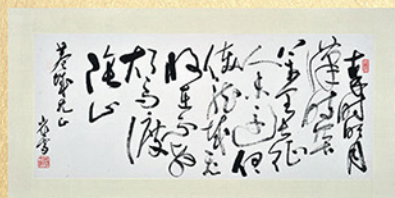 秦時明月
漢時關
萬里長征
人未還但
使龍城飛
將在不教
胡馬渡
陰山
兄正